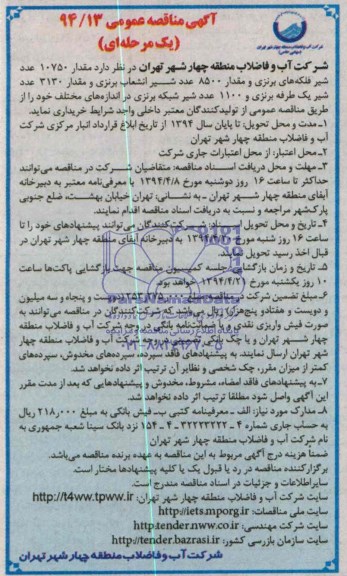 آگهی مناقصه عمومی ۹۴/۱۳
(یک مرحله‌ای)
شرکت آب و فاضلاب منطقه چهار شهر تهران
شرکت آب و فاضلاب منطقه چهار شهر تهران در نظر دارد مقدار ۱۰۷۵۰ عدد
شیر فلکه‌های برنزی و مقدار ۸۵۰۰ عدد شیر انشعاب برنزی و مقدار ۳۱۳۰ عدد
شیر یک طرفه برنزی و ۱۱۰۰ عدد شیر شبکه برنزی در اندازه‌های مختلف خود را از
طریق مناقصه عمومی از تولیدکنندگان معتبر داخلی واجد شرایط خریداری نماید.
۱-مدت و محل تحویل: تا پایان سال ۱۳۹۴ از تاریخ ابلاغ قرارداد انبار مرکزی شرکت
آب و فاضلاب منطقه چهار شهر تهران
۲-محل اعتبار: از محل اعتبارات جاری شرکت
۳-مهلت و محل دریافت اسناد مناقصه: متقاضیان شرکت در مناقصه می‌توانند
حداکثر تا ساعت ۱۶ روز دوشنبه مورخ ۱۳۹۴/۴/۸ با معرفی‌نامه معتبر به دبیرخانه
آبفای منطقه چهار شهر تهران - به نشانی: تهران خیابان بهشت، ضلع جنوبی
پارک‌شهر مراجعه و نسبت به دریافت اسناد مناقصه اقدام نمایند.
۴-تاریخ و محل تحویل اسناد: شرکت‌کنندگان می‌توانند پیشنهادهای خود را تا
ساعت ۱۶ روز شنبه مورخ به دبیرخانه آبفای منطقه چهار شهر تهران در
قبال اخذ رسید تحویل نمایند.
۵-تاریخ و زمان بازگشایی: جلسه کمیسیون مناقصه جهت بازگشایی پاکت‌ها ساعت
۱۰ روز یکشنبه مورخ ۱۳۹۴/۴/۲۱ خواهد بود.
۶-مبلغ تضمین شرکت در مناقصه: دویست و پنجاه و سه میلیون
و دویست و هفتاد و پنج هزار) ریال می‌باشد که شرکت‌کنندگان در مناقصه می‌توانند به
صورت فیش واریزی نقدی و یا ضمانت‌نامه بانکی شرکت آب و فاضلاب منطقه
چهار شهر تهران و یا چک بانکی شرکت آب و فاضلاب منطقه چهار
شهر تهران ارسال نمایند. به پیشنهادهای فاقد سپرده، سپرده‌های مخدوش، سپرده‌های
کمتر از میزان مقرر، چک شخصی و نظایر آن ترتیب اثر داده نخواهد شد.
۷-به پیشنهادهای فاقد امضاء، مشروط، مخدوش و پیشنهادهایی که بعد از مدت مقرر
این آگهی واصل شود مطلقا ترتیب اثر داده نخواهد شد.
۸-مدارک مورد نیاز: الف - معرفینامه کتبی ب- فیش بانکی به مبلغ ۲۱۸٫۰۰۰ ریال
به حساب جاری شماره ۴ - ۳۲۲۲۳۲۲۲ - ۴ - ۱۵۴ نزد بانک سینا شعبه جمهوری به
نام شرکت آب و فاضلاب منطقه چهار شهر تهران
ضمناً هزینه درج آگهی مربوط به این مناقصه به عهده برنده مناقصه می‌باشد.
برگزارکننده مناقصه در رد یا قبول یک یا کلیه پیشنهادها مختار است.
سایر اطلاعات و جزئیات در اسناد مناقصه مندرج است.
سایت شرکت آب و فاضلاب منطقه چهار شهر تهران: http://t4ww.tpww.ir
سایت ملی مناقصات: http://iets.mporg.ir
سایت شرکت مهندسی: http:tender.nww.co.ir
سایت سازمان بازرسی کشور: http://tender.bazrasi.ir
شرکت آب و فاضلاب منطقه چهار شهر تهران